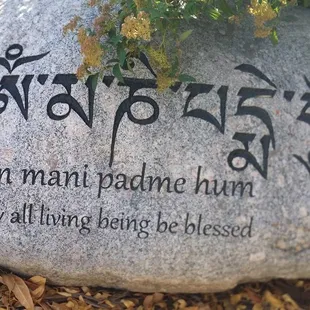 མ་ཎི་པ་དྨེ་
mani padme hum
all living being be blessed